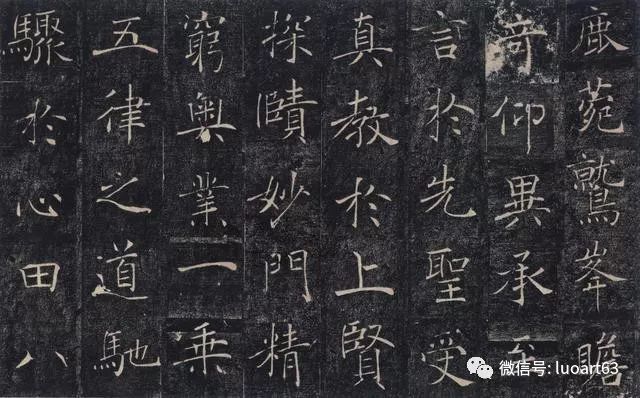 鹿菀鷲峯瞻
奇仰異承至
言於先聖受
真教於上賢
探賾妙門精
窮奥業一乗
五律之道馳
驟於心田八
微信号: luoart63